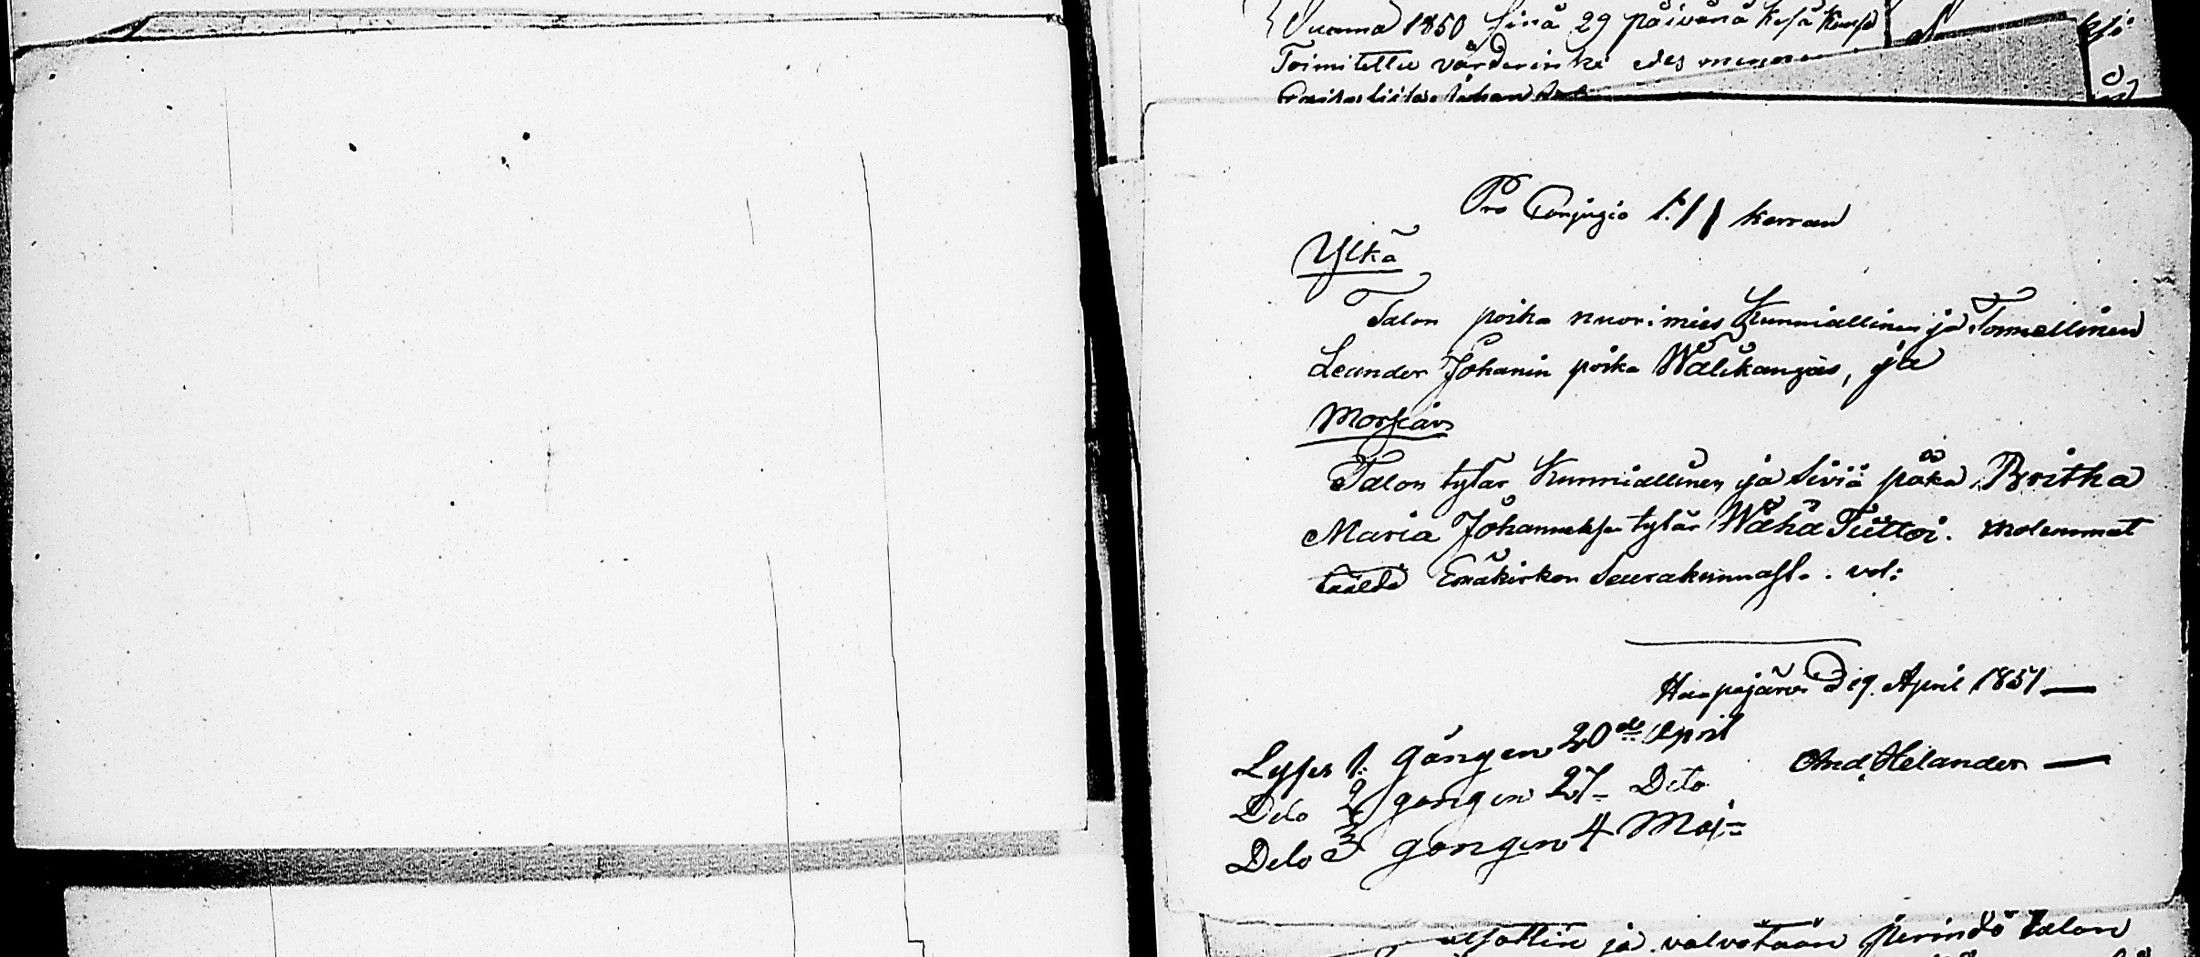 Vuonna 1850 Sinä 29 päivänä Kesä Kuusa
Toimitettu värderinki edes
Pro Conjugio 1:/ / kerran
Ylkä
Talon poika nuorimies Kunniallinen ja Toimellinen
Leander Johanin poika Wälikangas, ja
Morsian
Talon tytar Kunniallinen ja Siviä
Britha
Maria Johanneksen tytär Wähä Tiittoi. molemmat
tääldä Emäkirkon Seurakunnast. . vel:
Haapajärvi D 19. April 1851
Lyses 1: gången 20de April
And. Helander
Deto 2 gongen 27 Deto
Deto 3 gongen 4 Maj
ja valvotaan Perindö talon